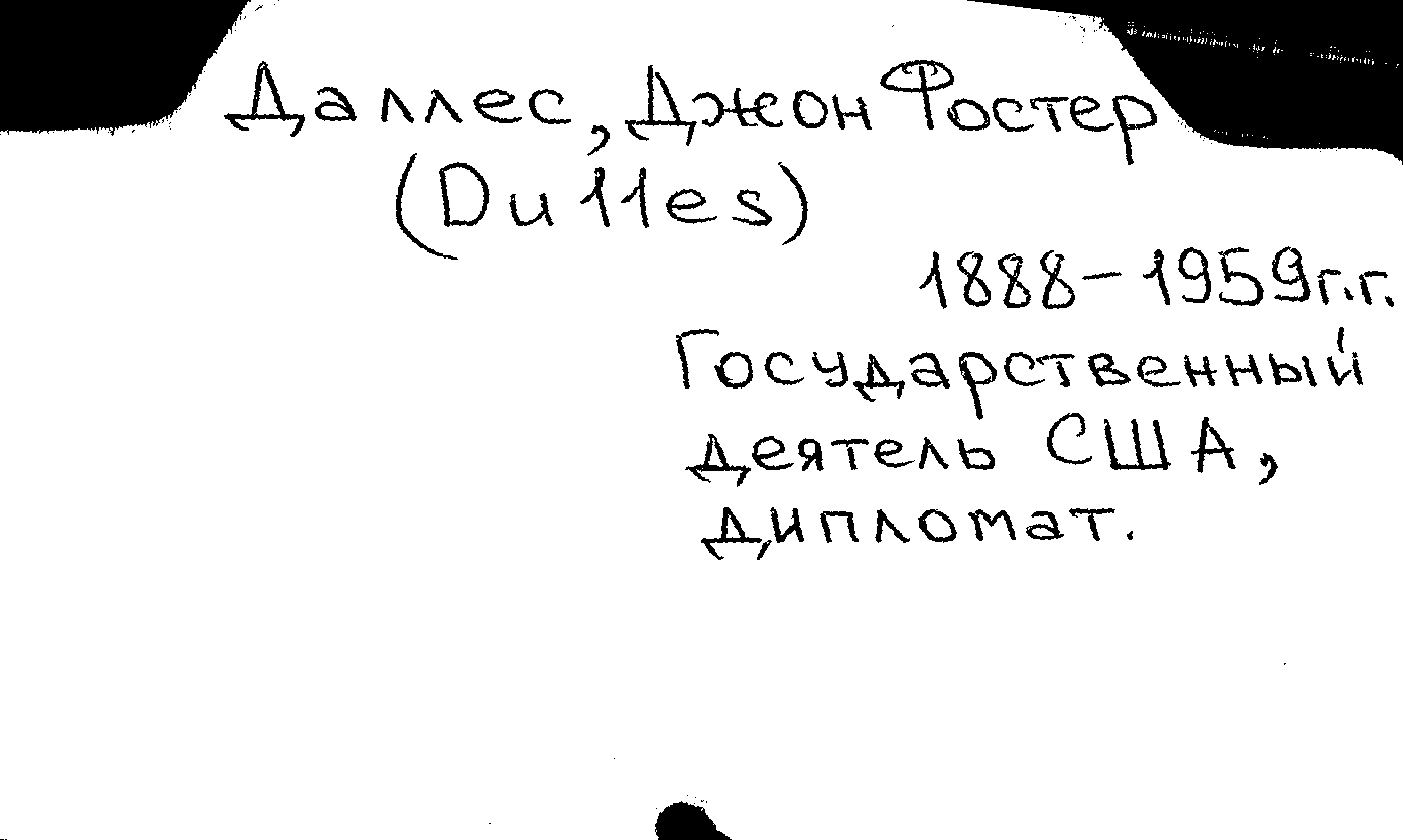 Даллес, Джон Фостер
(Dulles)
1888-1959г.г.
Государственный
деятель США,
дипломат.